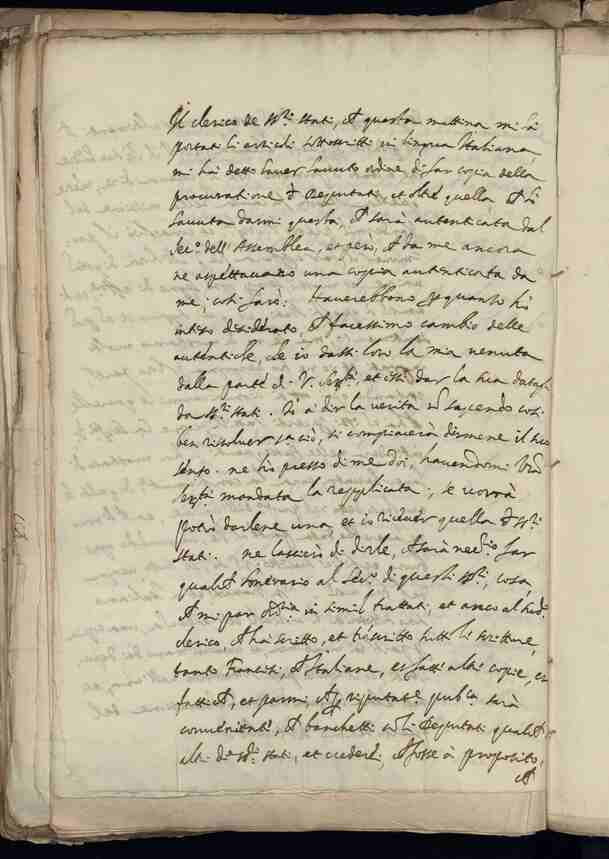 Il clerico de SSri Stati, che questa mattina mi ha
portati li articoli sottoscritti in lingua Italiana,
mi ha detto haver havuto ordine, di far copia della
procuratione de Deputati, et oltre quella che ha
havuta darmi questa, che sarà autenticata dal
Secro dell'Assemblea, et però, che da me ancora
ne aspettavano una copia autenticata da
me; così farò: haverebbono per quanto ho
inteso desiderato, che facessimo cambio delle
autentiche, che io dassi loro la mia venuta
dalla parte di V. Sertà, et essi dar la sua
da SSri Stati. Io a dir la verità
ben risolver in ciò, si compiacerà dirmene il suo
senso. ne ho presso di me doi, havendomi Vra
Sertà mandata la replicata, se vorrà
potrò darlene una, et io ricever quella de SSri
Stati. ne lasciarò di dirle, che sarà necrio far
qualche honorario al Secro di questi SSri, cosa,
che mi par in simil trattati, et anco al
clerico, che ha scritto, et riscritto tutte le scritture,
tanto Francesi, che Italiane, et fatti altri copie,
fatiche, et parmi, che per riputatne pubca sarà
conveniente, che banchetti con li Deputati qualche
altri di SSri Stati, et crederei, che fosse à proposito,
che